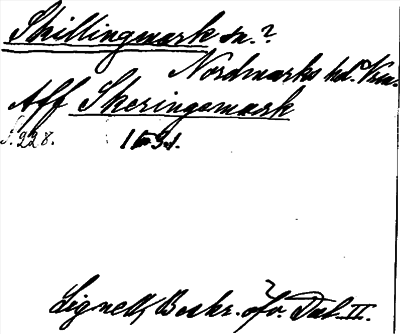 Skillingmark sn.?
Nordmarks hd. Vrm.
Aff Skeringsmark
S. 228. 1631.
Lignell, Beskr. öfv. Dal. II.